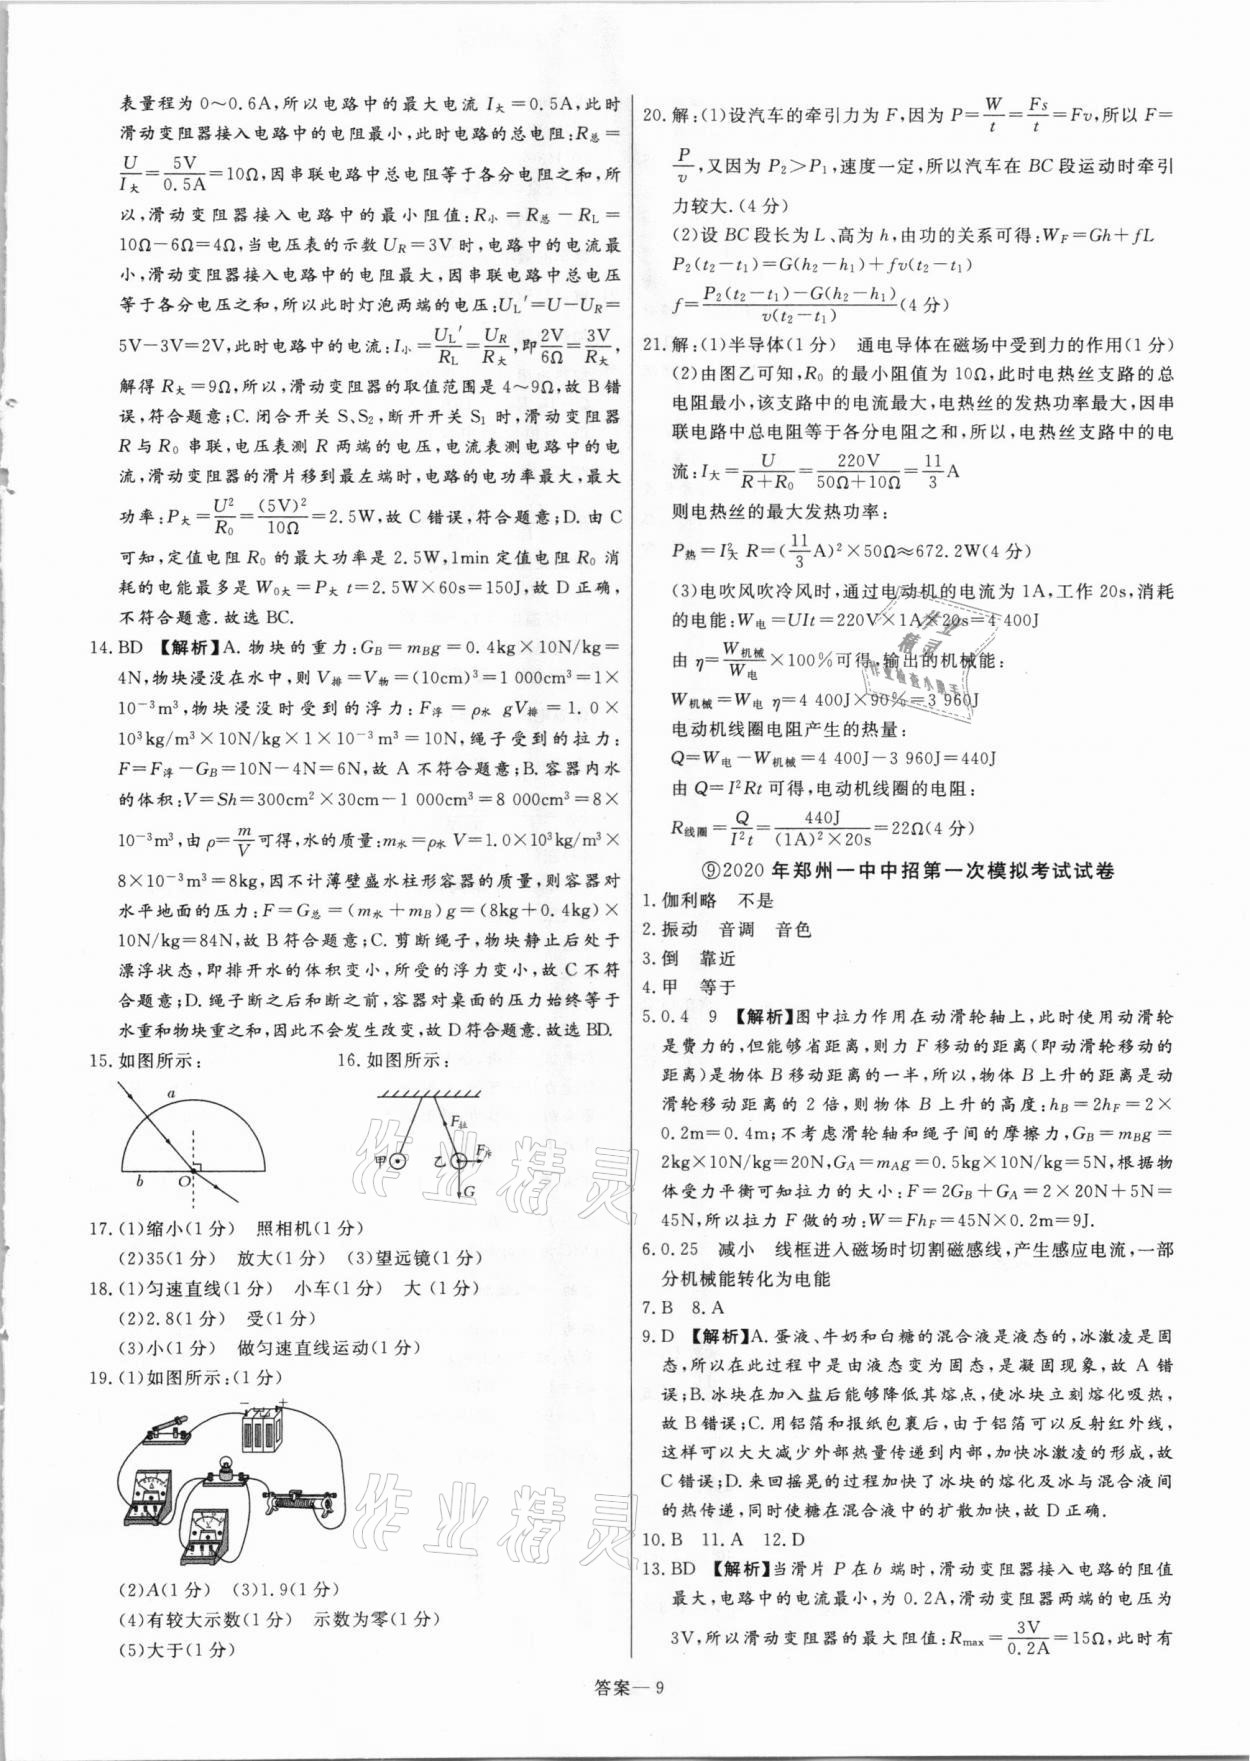 表量程为0～0.6A,所以电路中的最大电流I大=0.5A,此时
滑动变阻器接入电路中的电阻最小,此时电路的总电阻:R总=
U/I大=5V/0.5A=10Ω,因串联电路中总电阻等于各分电阻之和,所
以,滑动变阻器接入电路中的最小阻值:R小=R总-RL=
10Ω-6Ω=4Ω,当电压表的示数UR=3V时,电路中的电流最
小,滑动变阻器接入电路中的电阻最大,因串联电路中总电压
等于各分电压之和,所以此时灯泡两端的电压:UL′=U-UR=
5V-3V=2V,此时电路中的电流:I小=UL′/RL=UR/R大,即2V/6Ω=3V/R大,
解得R大=9Ω,所以,滑动变阻器的取值范围是4～9Ω,故B错
误,符合题意;C.闭合开关S、S2,断开开关S1时,滑动变阻器
R与R0串联,电压表测R两端的电压,电流表测电路中的电
流,滑动变阻器的滑片移到最左端时,电路的电功率最大,最大
功率:P大=U²/R0=(5V)²/10Ω=2.5W,故C错误,符合题意;D.由C
可知,定值电阻R0的最大功率是2.5W,1min定值电阻R0消
耗的电能最多是W0大=P大t=2.5W×60s=150J,故D正确,
不符合题意.故选BC.
14.BD 【解析】A.物块的重力:GB=mBg=0.4kg×10N/kg=
4N,物块浸没在水中,则V排=V物=(10cm)³=1 000cm³=1×
10⁻³m³,物块浸没时受到的浮力:F浮=ρ水gV排=1.0×
10³kg/m³×10N/kg×1×10⁻³m³=10N,绳子受到的拉力:
F=F浮-GB=10N-4N=6N,故A不符合题意;B.容器内水
的体积:V=Sh=300cm²×30cm-1 000cm³=8 000cm³=8×
10⁻³m³,由ρ=m/V可得,水的质量:m水=ρ水V=1.0×10³kg/m³×
8×10⁻³m³=8kg,因不计薄壁盛水柱形容器的质量,则容器对
水平地面的压力:F=G总=(m水+mB)g=(8kg+0.4kg)×
10N/kg=84N,故B符合题意;C.剪断绳子,物块静止后处于
漂浮状态,即排开水的体积变小,所受的浮力变小,故C不符
合题意;D.绳子断之后和断之前,容器对桌面的压力始终等于
水重和物块重之和,因此不会发生改变,故D符合题意.故选BD.
15.如图所示: 16.如图所示:
a
b
O
甲
乙
F拉
F斥
G
17.(1)缩小(1分) 照相机(1分)
(2)35(1分) 放大(1分) (3)望远镜(1分)
18.(1)匀速直线(1分) 小车(1分) 大(1分)
(2)2.8(1分) 受(1分)
(3)小(1分) 做匀速直线运动(1分)
19.(1)如图所示:(1分)
- +
A
V
(2)A(1分) (3)1.9(1分)
(4)有较大示数(1分) 示数为零(1分)
(5)大于(1分)
20.解:(1)设汽车的牵引力为F,因为P=W/t=Fs/t=Fv,所以F=
P/v,又因为P2>P1,速度一定,所以汽车在BC段运动时牵引
力较大.(4分)
(2)设BC段长为L、高为h,由功的关系可得:WF=Gh+fL
P2(t2-t1)=G(h2-h1)+fv(t2-t1)
f=P2(t2-t1)-G(h2-h1)/v(t2-t1)(4分)
21.解:(1)半导体(1分) 通电导体在磁场中受到力的作用(1分)
(2)由图乙可知,R0的最小阻值为10Ω,此时电热丝支路的总
电阻最小,该支路中的电流最大,电热丝的发热功率最大,因串
联电路中总电阻等于各分电阻之和,所以,电热丝支路中的电
流:I大=U/(R+R0)=220V/(50Ω+10Ω)=11/3A
则电热丝的最大发热功率:
P热=I²大R=(11/3A)²×50Ω≈672.2W(4分)
(3)电吹风吹冷风时,通过电动机的电流为1A,工作20s,消耗
的电能:W电=UIt=220V×1A×20s=4 400J
由η=W机械/W电×100%可得,输出的机械能:
W机械=W电η=4 400J×90%=3 960J
电动机线圈电阻产生的热量:
Q=W电-W机械=4 400J-3 960J=440J
由Q=I²Rt可得,电动机线圈的电阻:
R线圈=Q/I²t=440J/(1A)²×20s=22Ω(4分)
⑨2020年郑州一中中招第一次模拟考试试卷
1.伽利略 不是
2.振动 音调 音色
3.倒 靠近
4.甲 等于
5.0.4 9 【解析】图中拉力作用在动滑轮轴上,此时使用动滑轮
是费力的,但能够省距离,则力F移动的距离(即动滑轮移动的
距离)是物体B移动距离的一半,所以,物体B上升的距离是动
滑轮移动距离的2倍,则物体B上升的高度:hB=2hF=2×
0.2m=0.4m;不考虑滑轮轴和绳子间的摩擦力,GB=mBg=
2kg×10N/kg=20N,GA=mAg=0.5kg×10N/kg=5N,根据物
体受力平衡可知拉力的大小:F=2GB+GA=2×20N+5N=
45N,所以拉力F做的功:W=FhF=45N×0.2m=9J.
6.0.25 减小 线框进入磁场时切割磁感线,产生感应电流,一部
分机械能转化为电能
7.B 8.A
9.D 【解析】A.蛋液、牛奶和白糖的混合液是液态的,冰激凌是固
态,所以在此过程中是由液态变为固态,是凝固现象,故A错
误;B.冰块在加入盐后能够降低其熔点,使冰块立刻熔化吸热,
故B错误;C.用铝箔和报纸包裹后,由于铝箔可以反射红外线,
这样可以大大减少外部热量传递到内部,加快冰激凌的形成,故
C错误;D.来回摇晃的过程加快了冰块的熔化及冰与混合液间
的热传递,同时使糖在混合液中的扩散加快,故D正确.
10.B 11.A 12.D
13.BD 【解析】当滑片P在b端时,滑动变阻器接入电路的阻值
最大,电路中的电流最小,为0.2A,滑动变阻器两端的电压为
3V,所以滑动变阻器的最大阻值:Rmax=3V/0.2A=15Ω,此时有
答案—9
作业精灵
作业精灵
作业
精灵
作业检查小助手